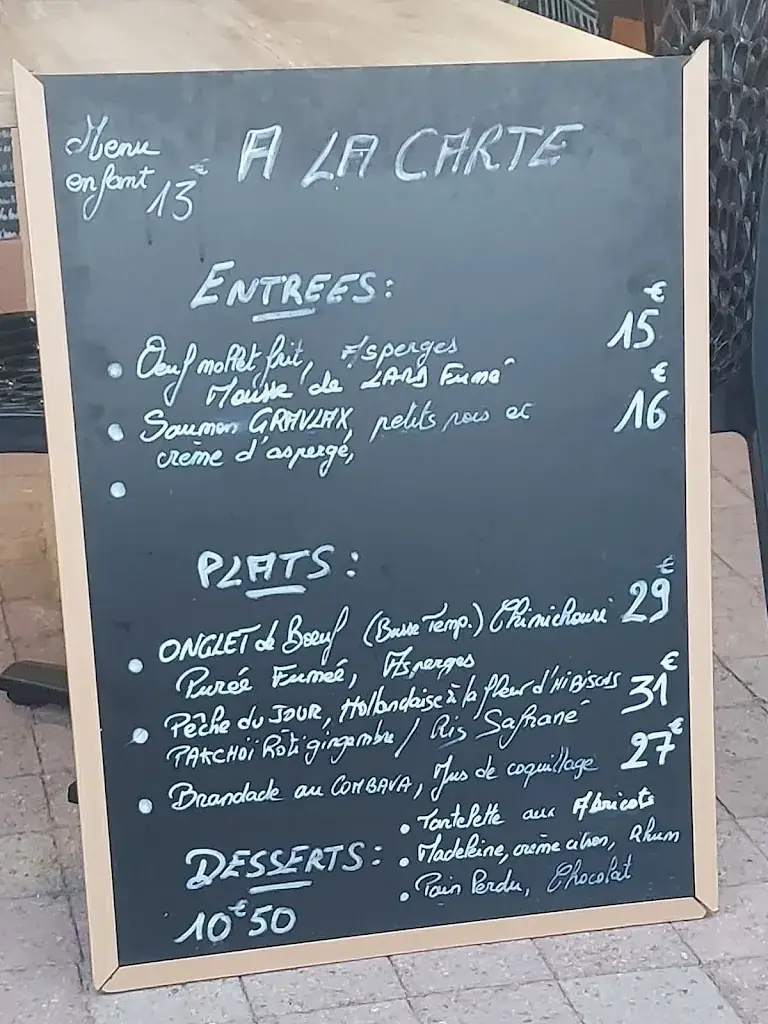 Menu
enfant 13€
A LA CARTE
ENTREES:
• Oeuf mollet frit, Asperges 15€
Mousse de LARD Fumé
• Saumon GRAVLAX, petits pois et 16€
crème d'asperge,
•
PLATS:
• ONGLET de Boeuf (Basse Temp.) Chimichouri 29€
Purée Fumée, Asperges
• Pêche du JOUR, Hollandaise à la fleur d'HiBiscus 31€
PAKCHOÏ Rôti gingembre / Ris Safrané
• Brandade au COMBAVA, Jus de coquillage 27€
DESSERTS:
10€50
• Tartelette aux Abricots
• Madeleine, crème citron, Rhum
• Pain Perdu, Chocolat